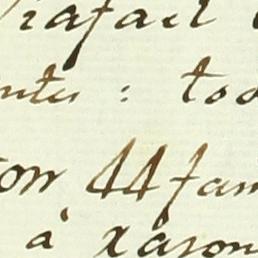 Rafael
ntes : tod
ton 44 fam
à razon